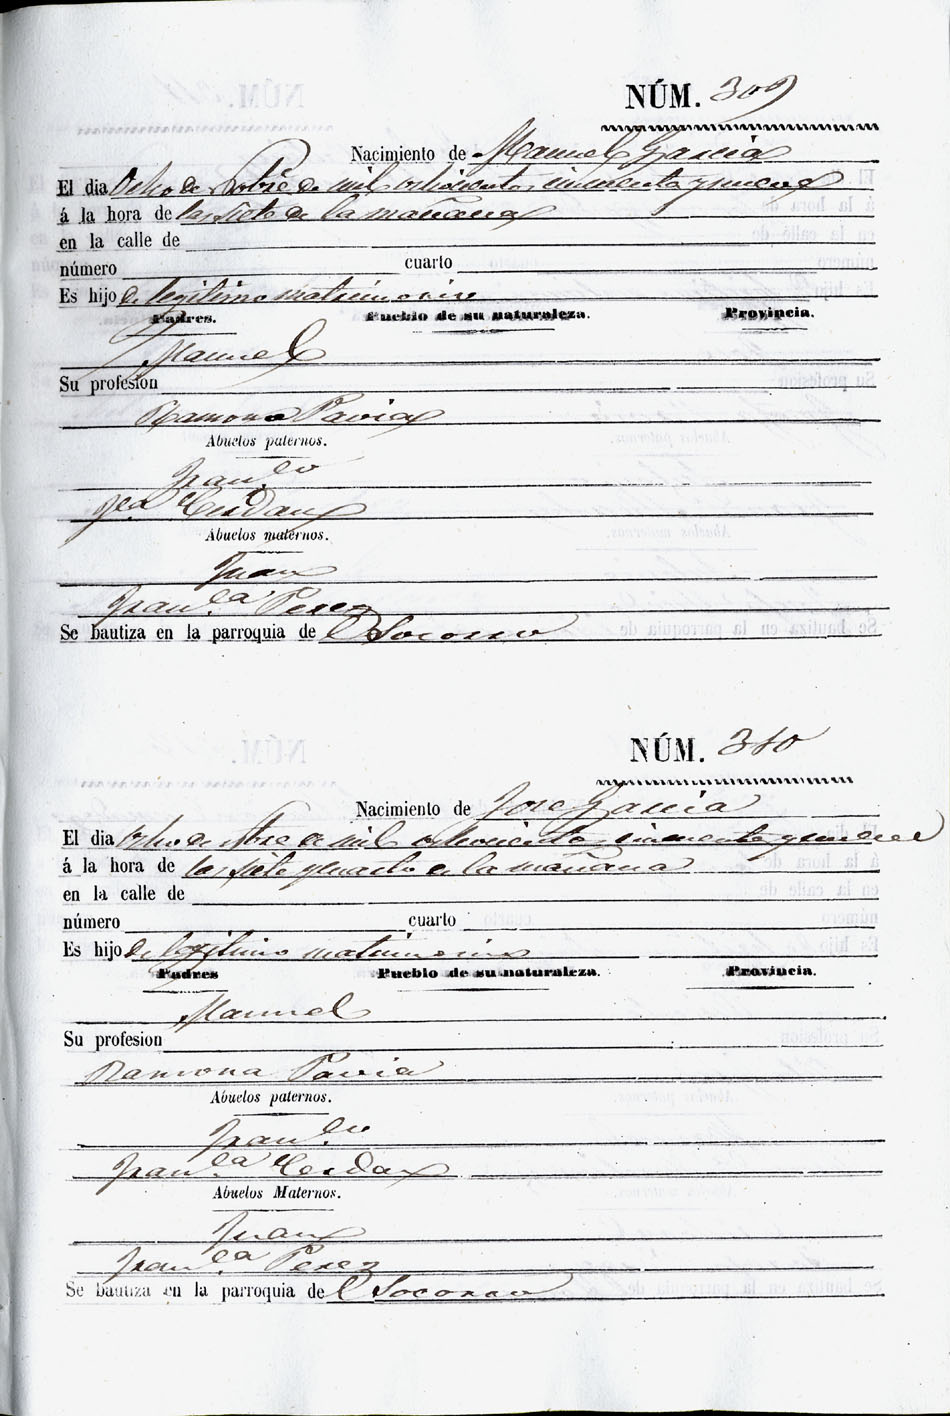 NÚM. 309
Nacimiento de Manuel García
El dia Ocho de Nobre de mil ochocientos cincuenta y nueve
á la hora de las siete de la mañana
en la calle de
número cuarto
Es hijo de legitimo matrimonio
Padres. Pueblo de su naturaleza. Provincia.
Manuel
Su profesion
Ramona Pavia
Abuelos paternos.
Fran.co
Cerdan
Abuelos maternos.
Juan
Fran.ca Perez
Se bautiza en la parroquia de El Socorro
NÚM. 310
Nacimiento de Jose García
El dia ocho de Nbre de mil ochocientos cincuenta y nueve
á la hora de las siete y cuarto de la mañana
en la calle de
número cuarto
Es hijo de legitimo matrimonio
Padres Pueblo de su naturaleza. Provincia.
Manuel
Su profesion
Ramona Pavia
Abuelos paternos.
Fran.co
Fran.ca Cerdan
Abuelos Maternos.
Juan
Fran.ca Perez
Se bautiza en la parroquia de El Socorro